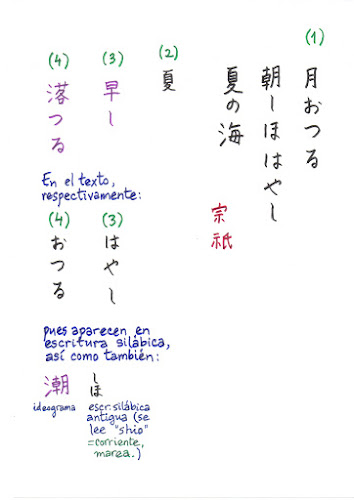 (1)
月おつる
朝しほはやし
夏の海
宗祇
(2)
夏
(3)
早し
(4)
落つる
En el texto,
respectivamente:
(3)
はやし
(4)
おつる
pues aparecen en
escritura silábica,
así como también:
潮
ideograma
しほ
escr. silábica
antigua (se
lee "shio"
=corriente,
marea.)